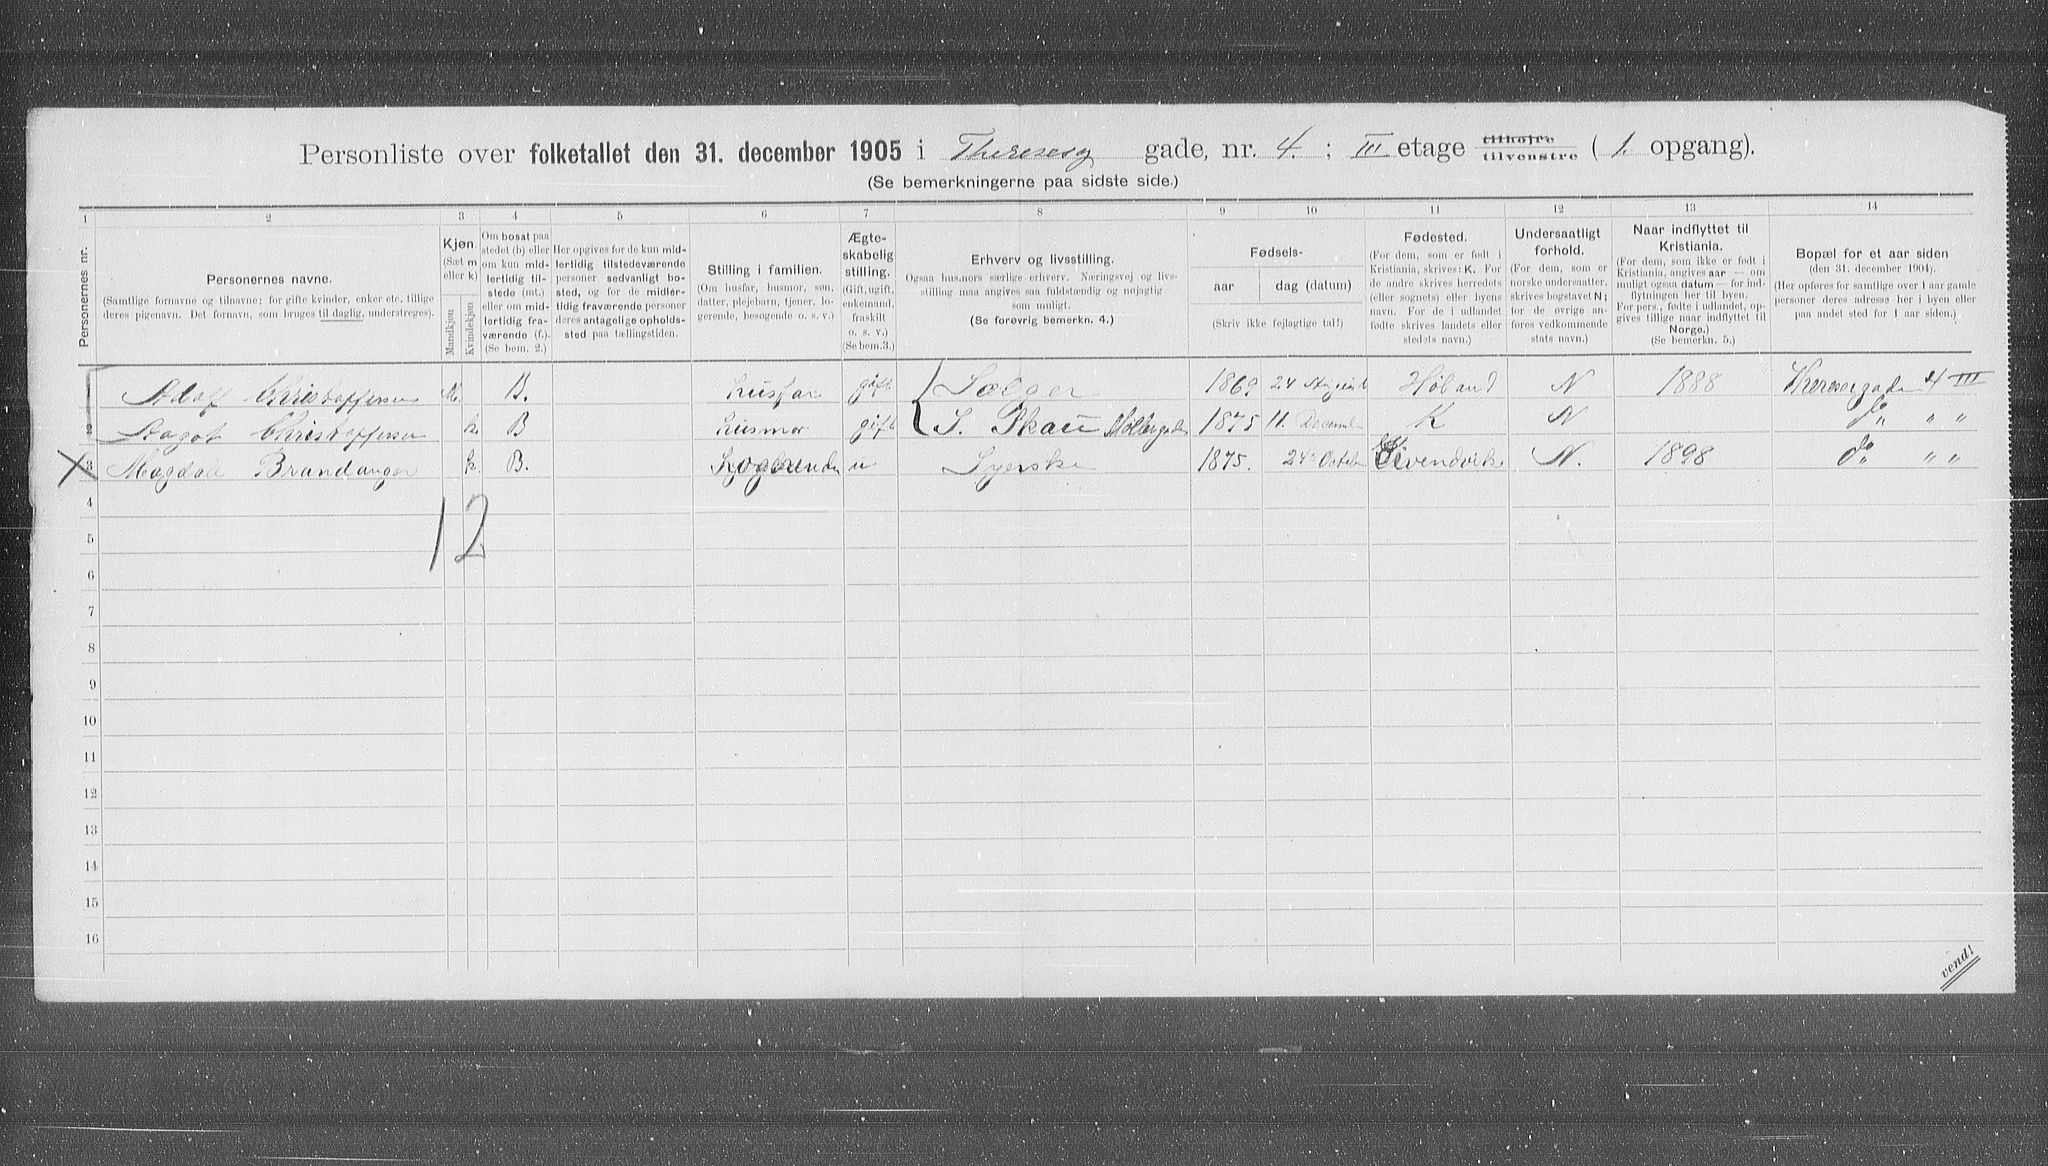 Personliste over folketallet den 31. december 1905 i Theresesg gade, nr. 4. ; III etage tilhøjre tilvenstre ( 1. opgang).
(Se bemerkningerne paa sidste side.)
1 2 3 4 5 6 7 8 9 10 11 12 13 14
Personernes nr.
Personernes navne.
(Samtlige fornavne og tilnavne; for gifte kvinder, enker etc. tillige
deres pigenavn. Det fornavn, som bruges til daglig, understreges).
Kjøn
(Sæt m
eller k)
Mandkjøn
Kvindekjøn
Om bosat paa
stedet (b) eller
om kun mid-
lertidig til-
stede (mt.)
eller om mid-
lertidig fra-
værende (f.).
(Se bem. 2.)
Her opgives for de kun mid-
lertidig tilstedeværende
personer sedvanligt bo-
sted, og for de midler-
tidig fraværende personer
deres antagelige opholds-
sted paa tællingstiden.
Stilling i familien.
(Om husfar, husmor, søn,
datter, plejebarn, tjener, lo-
gerende, besøgende o. s. v.)
Ægte-
skabelig
stilling.
(Gift, ugift,
enkemand,
fraskilt
o. s. v.)
(Se bem. 3.)
Erhverv og livsstilling.
Ogsaa husmors særlige erhverv. Næringsvej og livs-
stilling maa angives saa fuldstændig og nøjagtig
som muligt.
(Se forøvrig bemerkn. 4.)
Fødsels-
aar dag (datum)
(Skriv ikke fejlagtige tal!)
Fødested.
(For dem, som er født i
Kristiania, skrives: K. For
de andre skrives herredets
(eller sognets) eller byens
navn. For de i udlandet
fødte skrives landets eller
stedets navn.)
Undersaatligt
forhold.
(For dem, som er
norske undersaatter,
skrives bogstavet N;
for de øvrige an-
føres vedkommende
stats navn.)
Naar indflyttet til
Kristiania.
(For dem, som ikke er født i
Kristiania, angives aar — om
muligt ogsaa datum — for ind-
flytningen her til byen.
For pers., fødte i udlandet, op-
gives tillige naar indflyttet til
Norge.)
(Se bemerkn. 5.)
Bopæl for et aar siden
(den 31. december 1904).
(Her opføres for samtlige over 1 aar gamle
personer deres adresse her i byen eller
paa andet sted for 1 aar siden.)
1 Adolf Christoffersen M. B. husfar gift Sælger 1869 24 August Høland N 1888 Theresesgade 4 III
2 Dagot Christoffersen k. B husmor gift S. Skau Holbergsgade 11. Decembr 1875 K N do " "
3 Magdali Brandanger k. B. Logerende u Syerske 1875. 24 October Eivendvik N. 1898 do " "
12
4
5
6
7
8
9
10
11
12
13
14
15
16
vend!